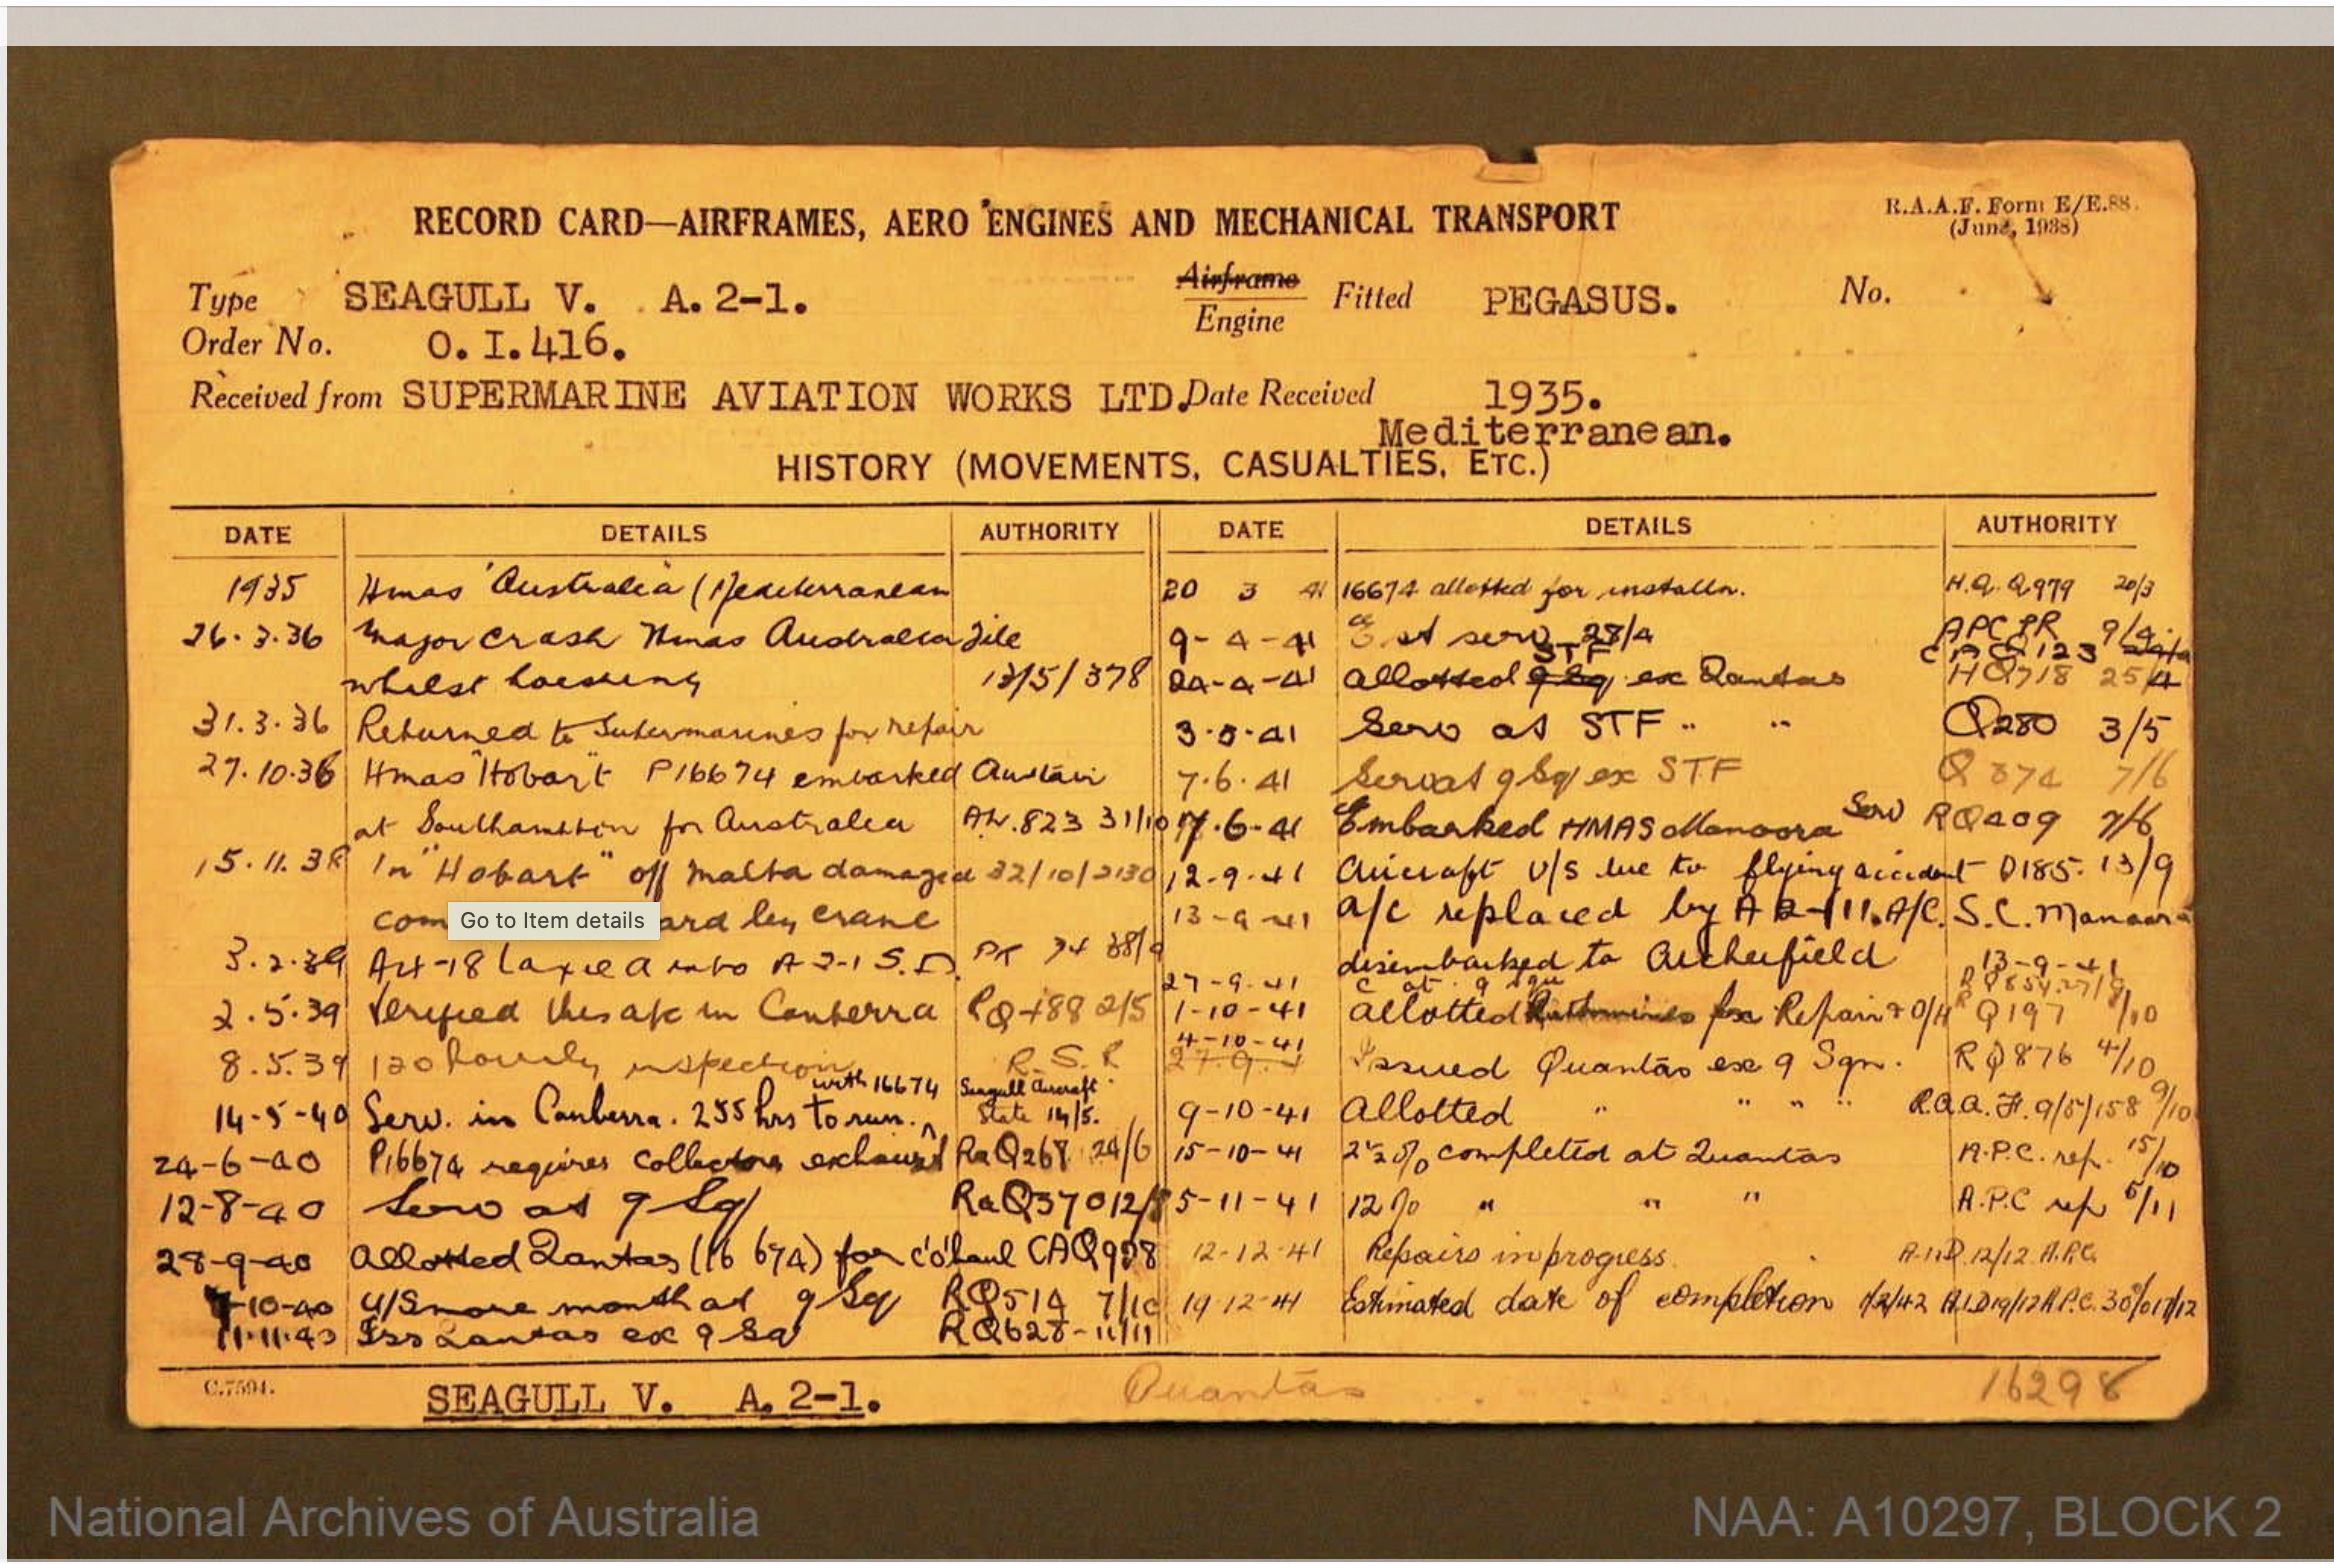 RECORD CARD—AIRFRAMES, AERO ENGINES AND MECHANICAL TRANSPORT
R.A.A.F. Form E/E.88.
(June, 1938)
Type SEAGULL V. A.2-1.
Airframe
Engine Fitted PEGASUS. No.
Order No. O.I.416.
Received from SUPERMARINE AVIATION WORKS LTD. Date Received 1935.
Mediterranean.
HISTORY (MOVEMENTS, CASUALTIES, ETC.)
DATE DETAILS AUTHORITY
1935 Hmas "Australia" (Mediterranean
26.3.36 Major crash Hmas Australia File
whilst hoisting 13/5/378
31.3.36 Returned to Supermarines for repair
27.10.36 Hmas "Hobart" P16674 embarked
at Southampton for Australia AW.823 31/10
15.11.38 In "Hobart" off Malta damaged 32/10/2130
com ard by crane
3.2.39 into A2-1 S.D. 38/9
2.5.39 Verified this a/c in Canberra RQ488 2/5
8.5.39 120 hourly inspection
14-5-40 Serv. in Canberra. 255 hrs to run. with 16674 Seagull Aircraft State 14/5.
24-6-40 P16674 requires collector exhaust RaQ267 24/6
12-8-40 Serv at 9 Sq RaQ370 12/8
28-9-40 Allotted Qantas (16674) for c'o'haul CAQ928
7-10-40 U/S more month at 9 Sq RQ514 7/10
11.11.40 Iss Qantas ex 9 Sq RQ628-11/11
DATE DETAILS AUTHORITY
20 3 41 16674 allotted for installn. H.Q. Q979 20/3
9-4-41 at serv 28/4 APC PR 9/4
CAQ123
24-4-41 Allotted 9 Sq STF ex Qantas HQ718 25/4
3.5.41 Serv at STF " " Q280 3/5
7.6.41 Serv at 9 Sq ex STF Q874 7/6
17.6-41 Embarked HMAS Manoora Serv RQ409 7/6
12-9-41 Aircraft U/S due to flying accident D185. 13/9
13-9-41 a/c replaced by A2-11. A/C. S.C. Manoora
disembarked to Archerfield 13-9-41
27-9-41 C at 9 Sqn RQ854 27/9
1-10-41 Allotted for Repair & O/H Q197 1/10
4-10-41
27.9.4 Issued Quantas ex 9 Sqn. RQ876 4/10
9-10-41 Allotted " " " " R.A.A.F. 9/5/158 9/10
15-10-41 2½% completed at Quantas A.P.C. rep. 15/10
5-11-41 12% " " " A.P.C rep 5/11
12-12-41 Repairs in progress. A.I.D. 12/12 A.P.C.
19-12-41 Estimated date of completion 1/2/42 A.I.D 19/12 A.P.C. 30%
C.7594.
SEAGULL V. A.2-1.
Quantas
16298
Go to Item details
National Archives of Australia
NAA: A10297, BLOCK 2